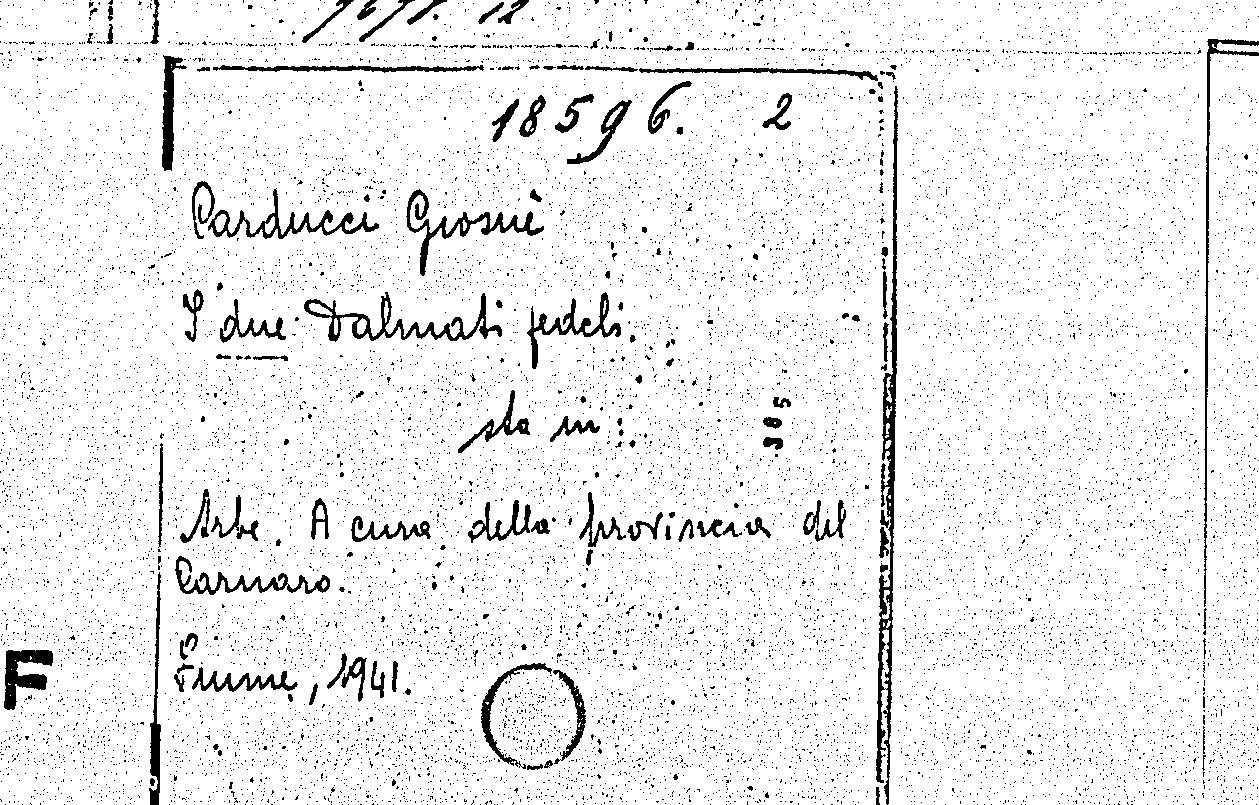 18596. 2
Carducci Giosuè
I due Dalmati fedeli.
sta in:
385
Arbe. A cura della provincia del
Carnaro.
Fiume, 1941.
F